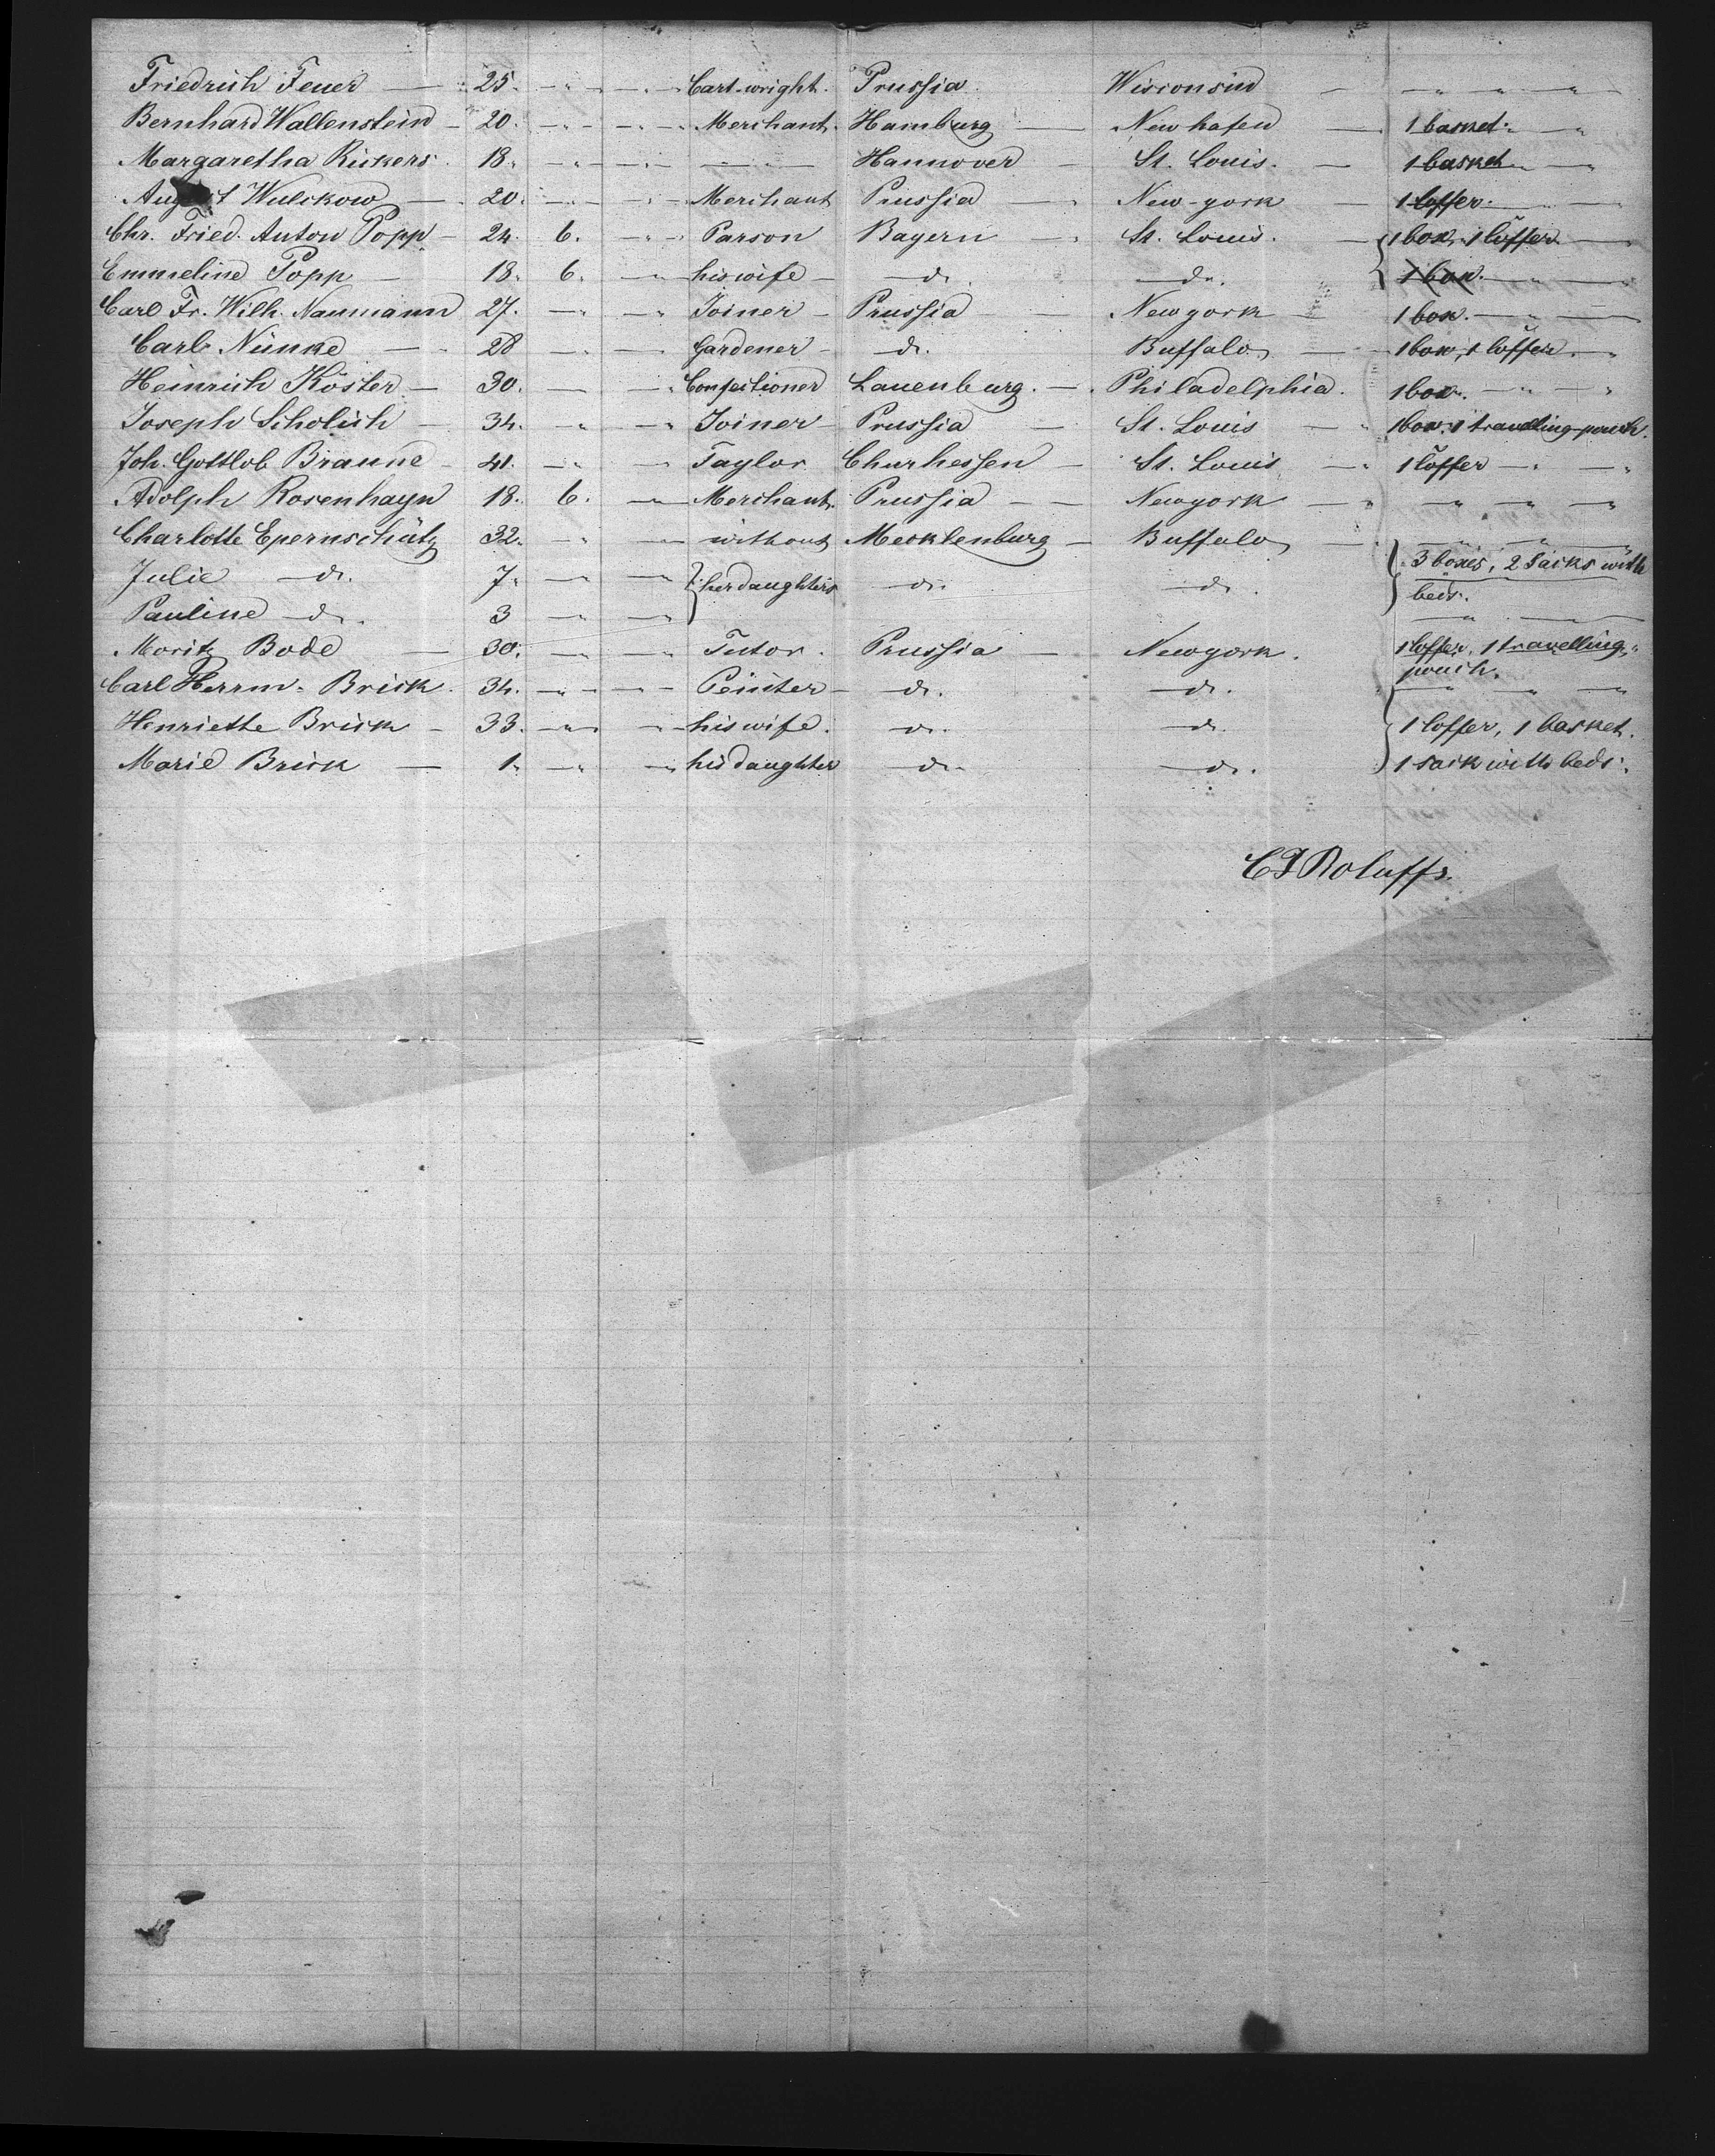 Friedrich Feuer — 25. Cart-wright. Prussia. Wisconsin
Bernhard Wallenstein — 20. Merchant. Hamburg — Newhafen — 1 basket.
Margaretha Rickers. 18. Hannover — St. Louis. — 1 basket
August Wulckow — 20. Merchant Prussia — New-york — 1 Coffer.
Chr. Fried. Anton Popp — 24. 6. Parson Bayern — St. Louis. — 1 box, 1 Cöffer
Emmeline Popp — 18. 6. his wife — do. do. 1 box.
Carl Fr. Wilh. Naumann 27. Joiner — Prussia — Newyork — 1 box.
Carl Nünke — 28 Gardener — do. Buffalo — 1 box, 1 Cöffer.
Heinrich Köster — 30. Confectioner Lauenburg. — Philadelphia. 1 box.
Joseph Scholich — 34. Joiner Prussia — St. Louis — 1 box. 1 travelling-pouch.
Joh. Gottlob Braune — 41. Taylor Churhessen — St. Louis — 1 Cöffer
Adolph Rosenhayn 18. 6. Merchant. Prussia — Newyork —
Charlotte Epernschütz 32. without Mecklenburg — Buffalo
Julie do. 7. her daughters do. do. 3 boxes, 2 Sacks with
beds.
Pauline do. 3
Moritz Bode — 30. Tutor. Prussia — Newyork. 1 Coffer, 1 travelling
pouch.
Carl Herrm. Brick. 34. Peinter — do. do.
Henriette Brick — 33. his wife. do. do. 1 Coffer, 1 basket.
Marie Brick — 1. his daughter do. do. 1 sack with beds.
Roluffs.